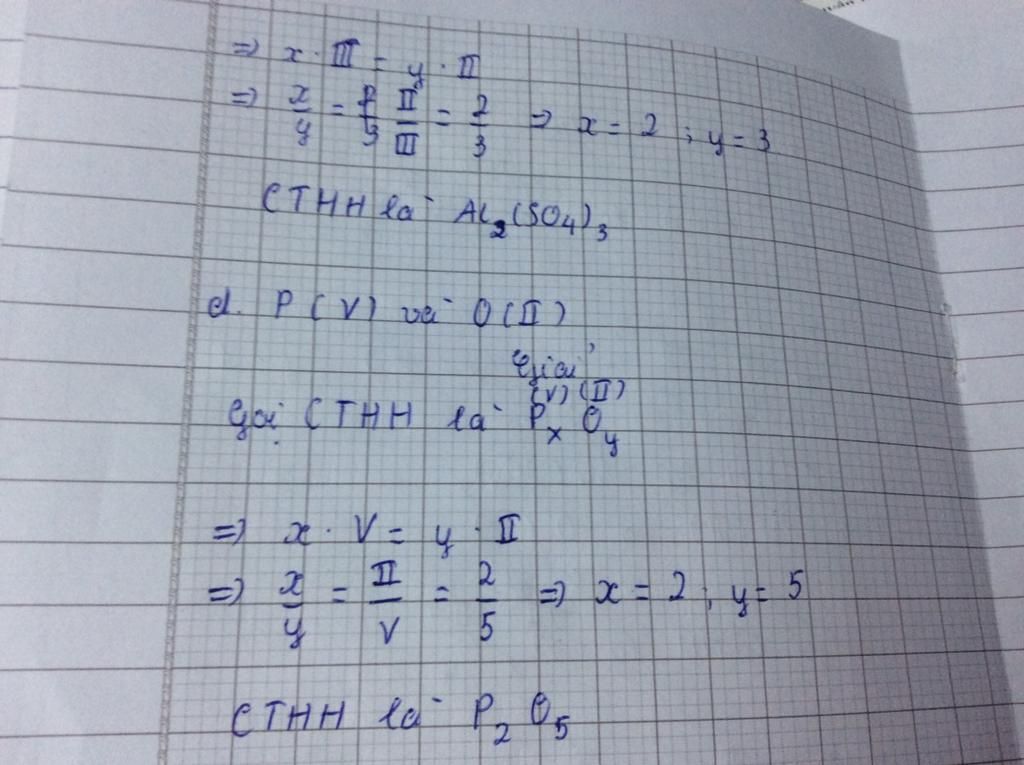 => x . III = y . II
=> x/y = II/III = 2/3 => x = 2 ; y = 3
CTHH là Al₂(SO₄)₃
d. P (V) và O (II)
Giải
(V) (II)
Gọi CTHH là PₓOᵧ
=> x . V = y . II
=> x/y = II/V = 2/5 => x = 2 ; y = 5
CTHH là P₂O₅